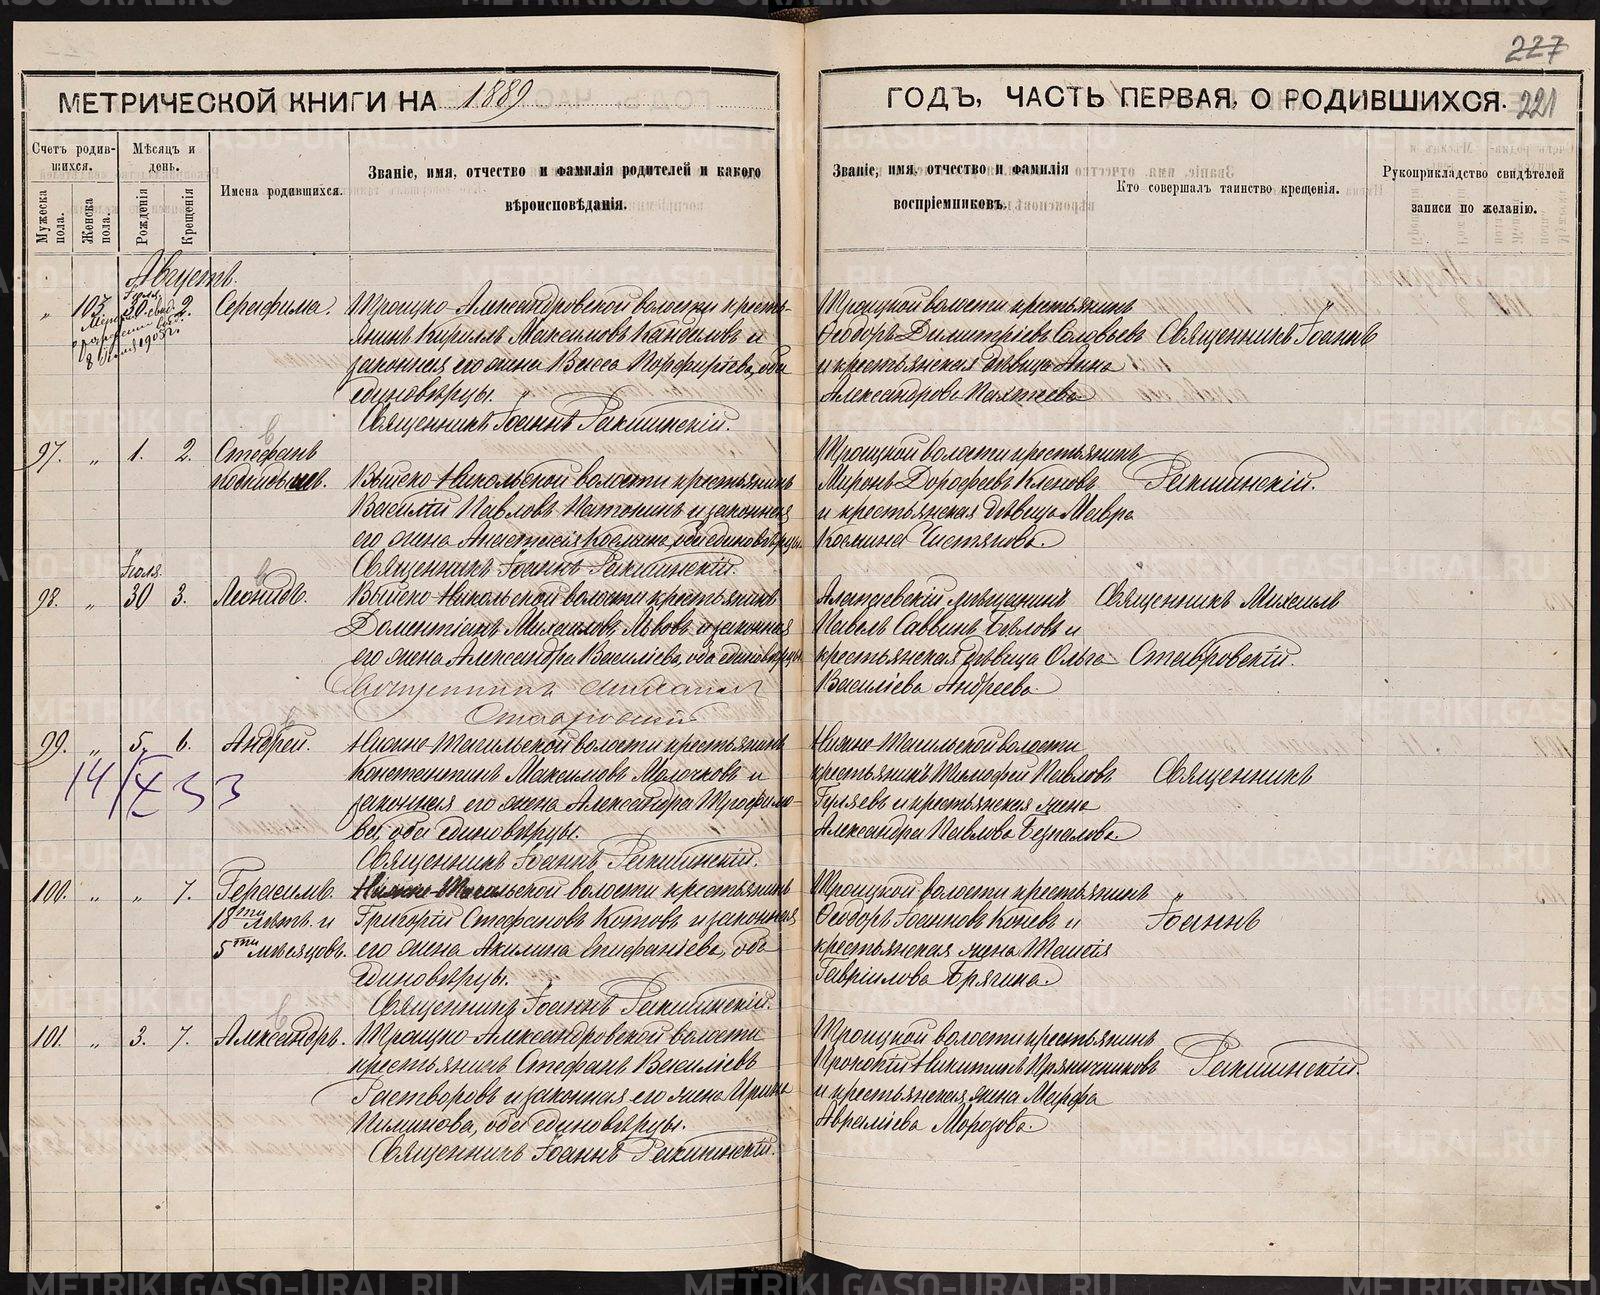 227
МЕТРИЧЕСКОЙ КНИГИ НА 1889
ГОДЪ, ЧАСТЬ ПЕРВАЯ, О РОДИВШИХСЯ. 221
Счетъ родив-
шихся.
Мужеска пола.
Женска пола.
Мѣсяцъ и
день.
Рожденія
Крещенія
Имена родившихся.
Званіе, имя, отчество и фамилія родителей и какого
вѣроисповѣданія.
Званіе, имя, отчество и фамилія
воспріемниковъ.
Кто совершалъ таинство крещенія.
Рукоприкладство свидѣтелей
записи по желанію.
Августъ
Іюля
„ 103 30. 2. Серафима.
8 1905 г.
Троицко-Александровской волости кресть-
янинъ Кириллъ Максимовъ и
законная его жена Васса Порфиріева, оба
единовѣрцы.
Священникъ Іоаннъ Ракшинскій.
Троицкой волости крестьянинъ
Ѳеодоръ Димитріевъ Соловьевъ
и крестьянская дѣвица Анна
Александрова
Священникъ Іоаннъ
97. „ 1. 2. Стефанъ
подкидышъ.
Выйско-Никольской волости крестьянинъ
Василій Павловъ и законная
его жена Анастасія Козьмина, оба единовѣрцы
Священникъ Іоаннъ Ракшинскій.
Троицкой волости крестьянинъ
Миронъ Дорофеевъ Кленовъ
и крестьянская дѣвица Мавра
Козмина Чистякова.
Ракшинскій.
Іюля
98. „ 30 3. Леонидъ.
Выйско-Никольской волости крестьянинъ
Доментіанъ Михаиловъ Львовъ и законная
его жена Александра Василіева, оба единовѣрцы
Священникъ Михаилъ
Ставровскій
Алапаевскій мѣщанинъ
Павелъ Саввинъ Бѣловъ и
крестьянская дѣвица Ольга
Василіева Андреева.
Священникъ Михаилъ
Ставровскій.
99. „ 5. 6. Андрей.
14/IX 33
Нижне-Тагильской волости крестьянинъ
Константинъ Максимовъ Молочковъ и
законная его жена Александра Трофимо-
ва, оба единовѣрцы.
Священникъ Іоаннъ Ракшинскій.
Нижне-Тагильской волости
крестьянинъ Тимофей Павловъ
Гуляевъ и крестьянская жена
Александра Павлова Безпалова.
Священникъ
100. „ „ 7. Герасимъ.
18ти лѣтъ и
5ти мѣсяцовъ.
Нижне-Тагильской волости крестьянинъ
Григорій Стефановъ Котовъ и законная
его жена Акилина Епифаніева, оба
единовѣрцы.
Священникъ Іоаннъ Ракшинскій.
Троицкой волости крестьянинъ
Ѳеодоръ Іоанновъ Коневъ и
крестьянская жена Таисія
Гавріилова Брягина.
Іоаннъ
101. „ 3. 7. Александръ.
Троицко-Александровской волости
крестьянинъ Стефанъ Василіевъ
Растворовъ и законная его жена Ирина
Пиминова, оба единовѣрцы.
Священникъ Іоаннъ Ракшинскій.
Троицкой волости крестьянинъ
Прокопій Никитинъ Пряничниковъ
и крестьянская жена Марфа
Авраміева Морозова.
Ракшинскій.
METRIKI.GASO-URAL.RU